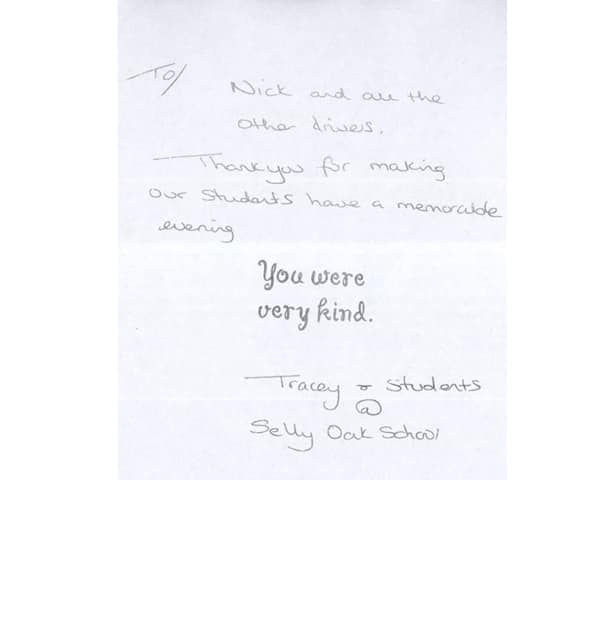 To/
Nick and all the
other drivers.
Thankyou for making
our Students have a memorable
evening
You were
very kind.
Tracey & Students
@
Selly Oak School